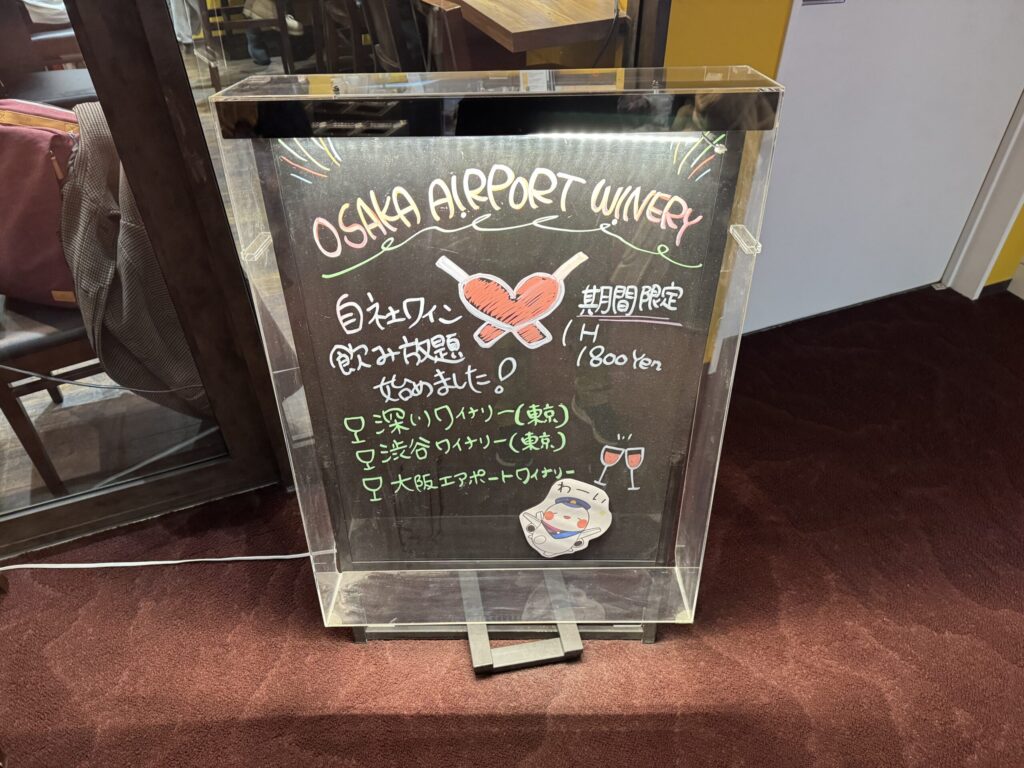 OSAKA AIRPORT WINERY
自社ワイン
飲み放題
始めました!
期間限定
1H
1800Yen
深川ワイナリー(東京)
渋谷ワイナリー(東京)
大阪エアポートワイナリー
わーい